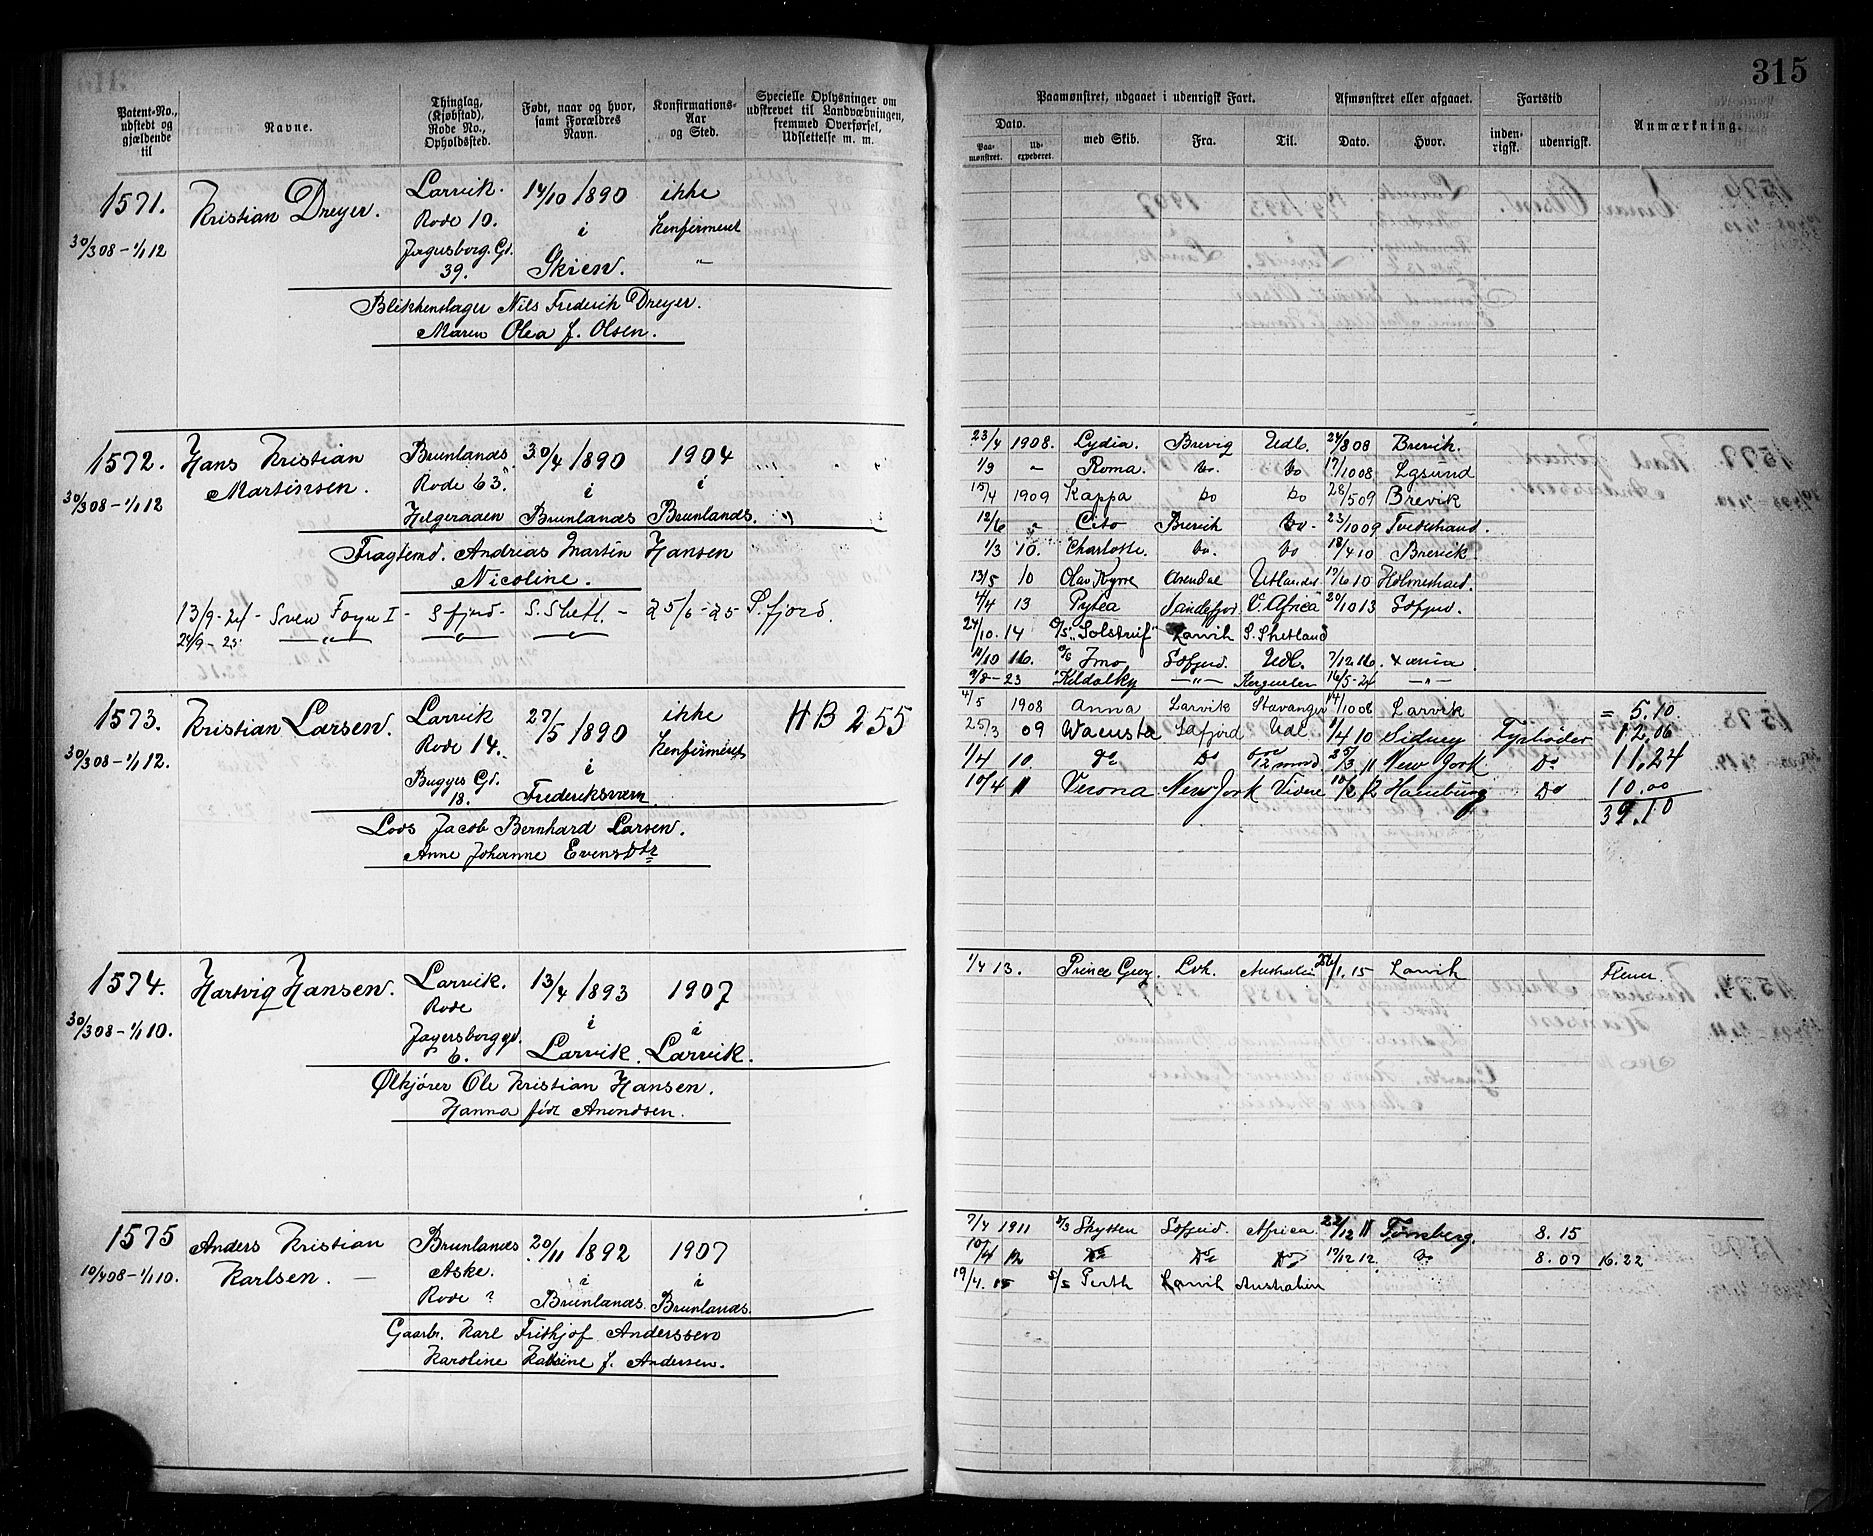 315
Patent-No., udstedt og gjældende til
Navne.
Thinglag, (Kjøbstad), Rode No., Opholdssted.
Født, naar og hvor, samt Forældres Navn.
Konfirmations-Aar og Sted.
Specielle Oplysninger om udskrevet til Landvædningen, fremmed Overførsel, Udslettelse m. m.
Paamønstret, udgaaet i udenrigsk Fart.
Afmønstret eller afgaaet.
Fartstid
Anmærkning.
Dato.
Paa-mønstret.
Ud-expederet.
med Skib.
Fra.
Til.
Dato.
Hvor.
inden-rigsk.
udenrigsk.
1571. Kristian Dreyer. Larvik. 14/10 1890 ikke
Rode 10. i Konfirmeret
30/3 08 - 1/1 12 Jægersborg. Gd. 39. Skien. "
Blikkenslager Nils Frederik Dreyer.
Maren Olea f. Olsen.
1572. Hans Kristian Martinsen. Brunlands 30/4 1890 1904
Rode 63. i i
30/3 08 - 1/1 12 Helgeraaen Brunlands Brunlands.
Fragtemd. Andreas Martin Hansen
Nicoline.
13/9-24 - Sven Foyn I - Sfjord - S. Shetl. - 25/6-25 S.fjord.
24/9-25 " " "
23/4 1908. Lydia. Brevig Udl. 24/8 08 Brevik.
1/9 " Roma. Do. Do 17/10 08 Egsund
15/4 1909 Kappa Do Do 28/5 09 Brevik
12/6 " Cito Brevik Do. 23/10 09 Tvedestrand.
1/3 10. Charlotte. Do. Do 18/4 10 Brevik.
13/5 10 Olav Kyrre Arendal Utlandet 17/6 10 Holmestrand.
4/4 13 Pytea Sandefjord V. Africa 20/10 13 Sdfjord.
24/10. 14 "Solstreif" Larvik S. Shetland
10/10 16. Imo Sdfjord. Udl. 7/12.16.
9/8-23 Kildalky - " - Kerguelen 16/5-24 - " -
1573. Kristian Larsen. Larvik 27/5 1890 ikke HB 255
Rode 14. i Konfirmeret
30/3 08 - 1/1 12. Bugges Gd. 18. Frederiksværn.
Lods Jacob Bernhard Larsen.
Anne Johanne Evensdtr
4/5 1908 Anna Larvik Stavanger 14/10 08 Larvik = 5.10
25/3 09 Safjord Udl 9/4 10 Sidney 12.06
1/4 10. do Do 12 mnd 25/3 11 New York Do 11.24
10/4 11 Verona New York Videre 10/2 12 Hamburg Do 10.00
39.10
1574. Hartvig Hansen. Larvik. 13/4 1893 1907
Rode i i
30/3 08 - 1/1 10. Jagersborg gd. 6. Larvik. Larvik.
Ølkjører Ole Kristian Hansen.
Hanna født Anundsen.
1/4 13. Prince Georg. Lvk. Australien 26/1. 15 Larvik
1575 Anders Kristian Karlsen. Brunlands 20/11 1892 1907
Aske.
10/4 08 - 1/1 10. Rode ? i i
Brunlands Brunlands.
Gaarbr. Karl Fritkjof Anderssen
Karoline f. Andersen.
7/4 1911 Skytten Sdfjord. Africa 22/12 11 Tønsberg. 8.15
10/4 12 Do Do Do 17/12 12. Do 8.07 16.22
19/4. 15 5/5 Perth Larvik Australien